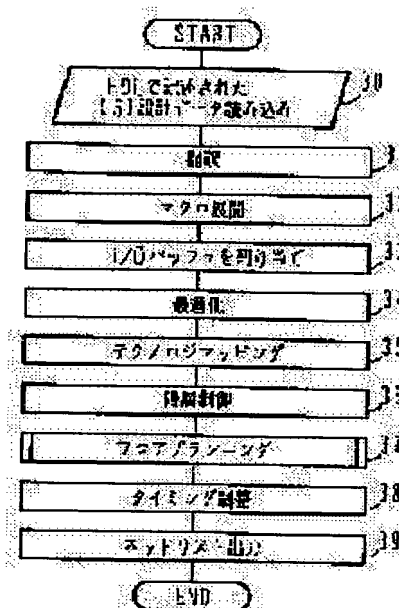 START
HDLで記述された
LSI設計データ読み込み
30
翻訳
マクロ展開
I/Oバッファを割り当て
最適化
34
テクノロジマッピング
35
階層制御
フロアプランニング
タイミング調整
38
ネットリスト出力
39
END